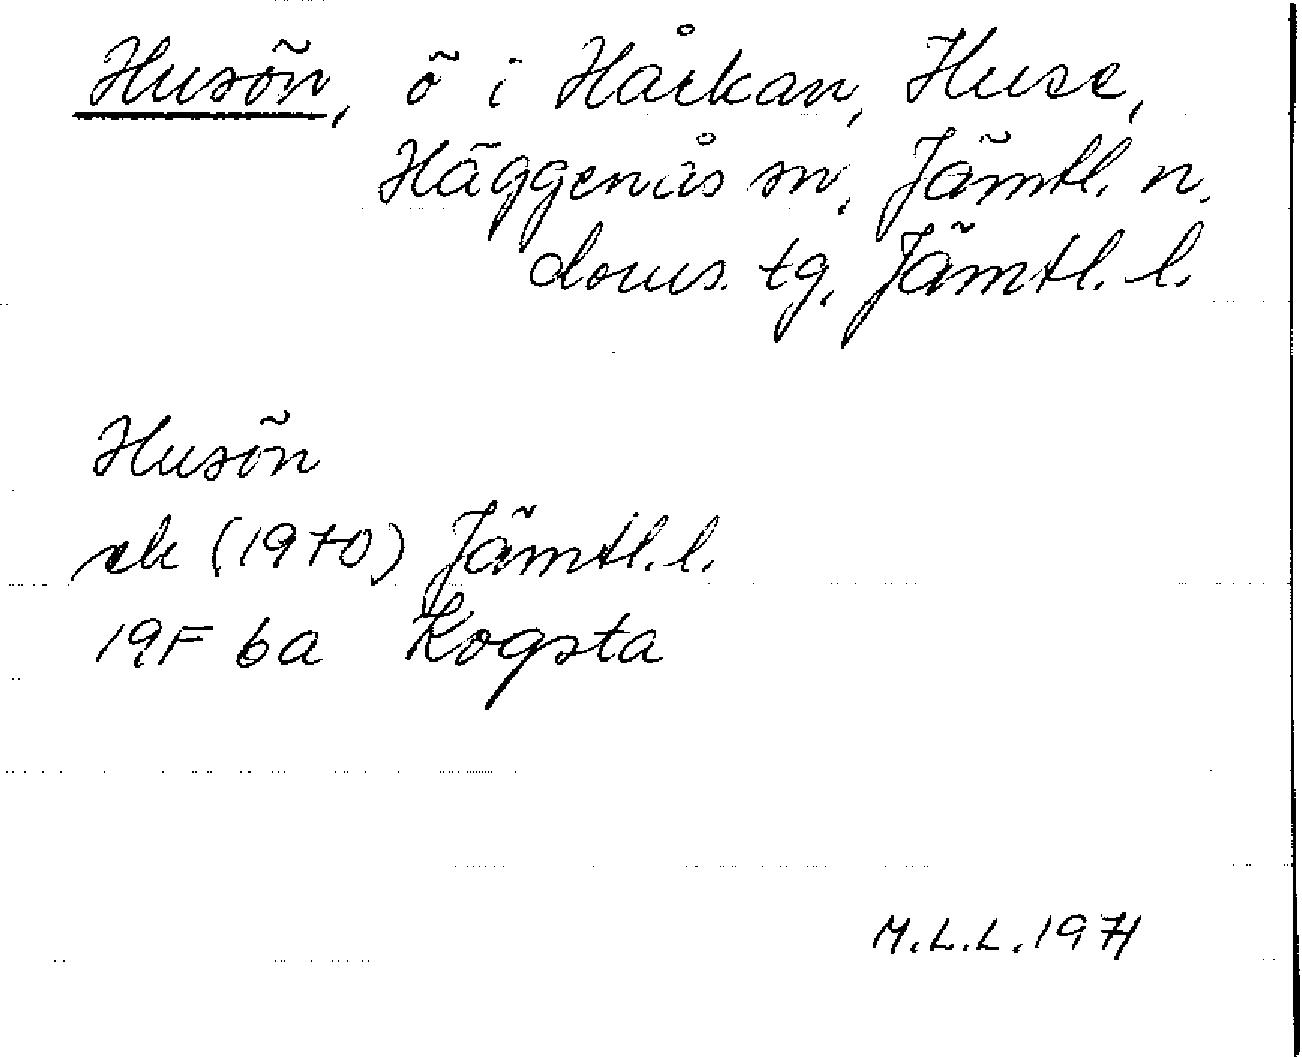 Husön, ö i Hårkan, Huse,
Häggenås sn, Jämtl. n.
doms. tg, Jämtl. l.
Husön
ek (1970) Jämtl. l.
19F 6a Kogsta
M.L.L. 1971